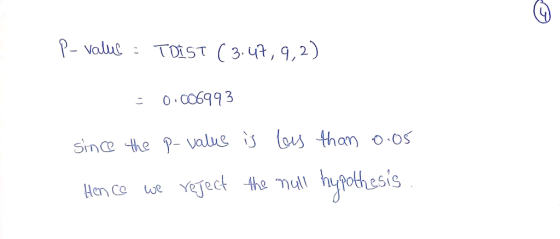 4
P-value = TDIST (3.47, 9, 2)
= 0.006993
since the p-value is less than 0.05
Hence we reject the null hypothesis.